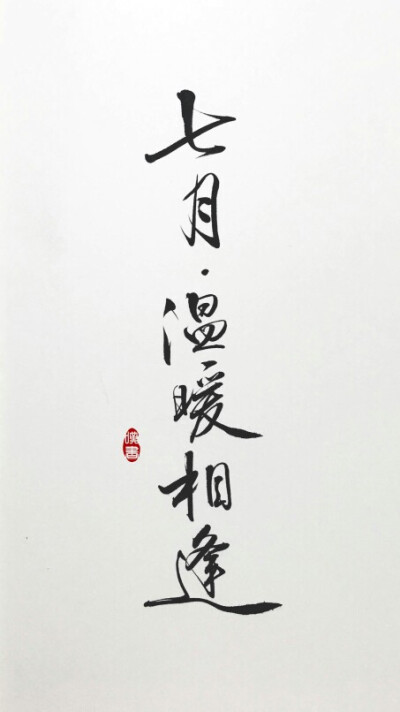 七月·温暖相逢